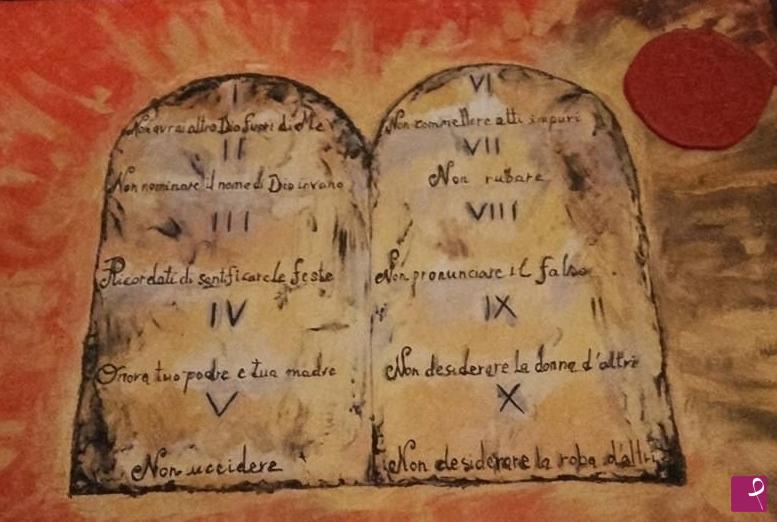 I
Non avrai altro Dio fuori di Me
II
Non nominare il nome di Dio invano
III
Ricordati di santificare le feste
IV
Onora tuo padre e tua madre
V
Non uccidere
VI
Non commettere atti impuri
VII
Non rubare
VIII
Non pronunciare il falso
IX
Non desiderare la donna d'altri
X
Non desiderare la roba d'altri